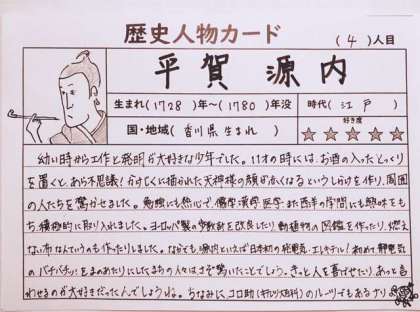 歴史人物カード
(4)人目
平賀 源内
生まれ(1728)年〜(1780)年没
時代(江戸)
国・地域(香川県生まれ)
好き度
☆☆☆☆☆
幼い時から工作と発明が大好きな少年でした。11才の時には、お酒の入ったとっくり
を置くと、あら不思議!かけじくに描かれた天神様の顔が赤くなるというしかけを作り、周囲
の人たちを驚かせました。勉強にも熱心で、儒学、漢学、医学、また西洋の学問にも興味をも
ち、積極的に取り入れました。ヨーロッパ製の歩数計を改良したり、動植物の図鑑を作ったり、燃え
ない布なんていうのも作ったりしました。なかでも、源内といえば日本初の発電気・エレキテル!初めて静電気
のバチバチッ!をまのあたりにしたまちの人々はさぞ驚いたことでしょう。きっと人を喜ばせたり、あっと言
わせるのが大好きだったんでしょうね。ちなみに、コロ助(キテレツ大百科)のルーツでもあるナリ